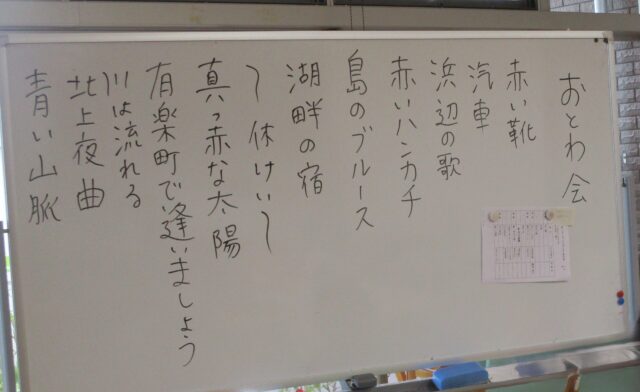 おとわ会
赤い靴
汽車
浜辺の歌
赤いハンカチ
島のブルース
湖畔の宿
〜休けい〜
真っ赤な太陽
有楽町で逢いましょう
川は流れる
北上夜曲
青い山脈